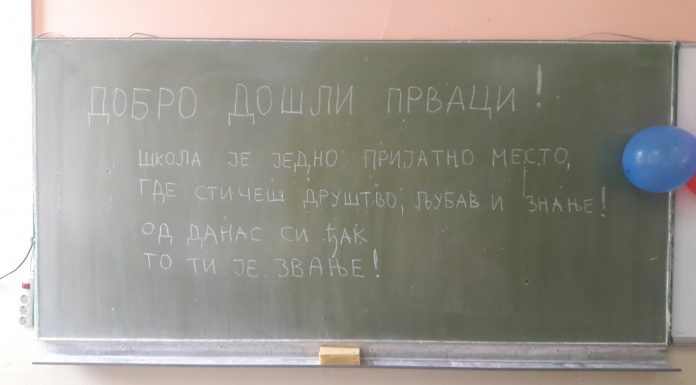 ДОБРО ДОШЛИ ПРВАЦИ!
ШКОЛА ЈЕ ЈЕДНО ПРИЈАТНО МЕСТО,
ГДЕ СТИЧЕШ ДРУШТВО, ЉУБАВ И ЗНАЊЕ!
ОД ДАНАС СИ ЂАК
ТО ТИ ЈЕ ЗВАЊЕ!